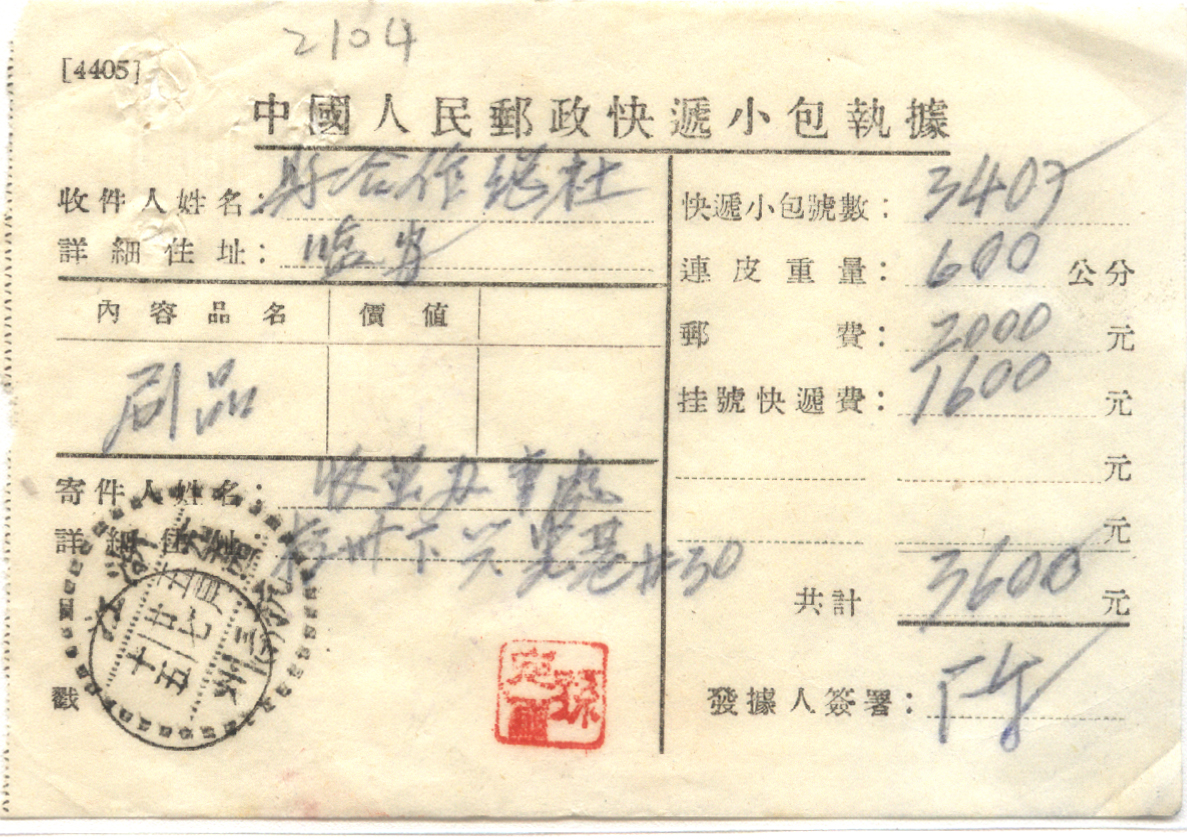 2104
[4405]
中國人民郵政快遞小包執據
收件人姓名：縣合作總社
詳細住址：臨安
內容品名 價值
刷品
寄件人姓名：
詳細住址：
戳
快遞小包號數：3407
連皮重量：600 公分
郵費：2000 元
挂號快遞費：1600 元
元
元
共計 3600 元
發據人簽署：下午